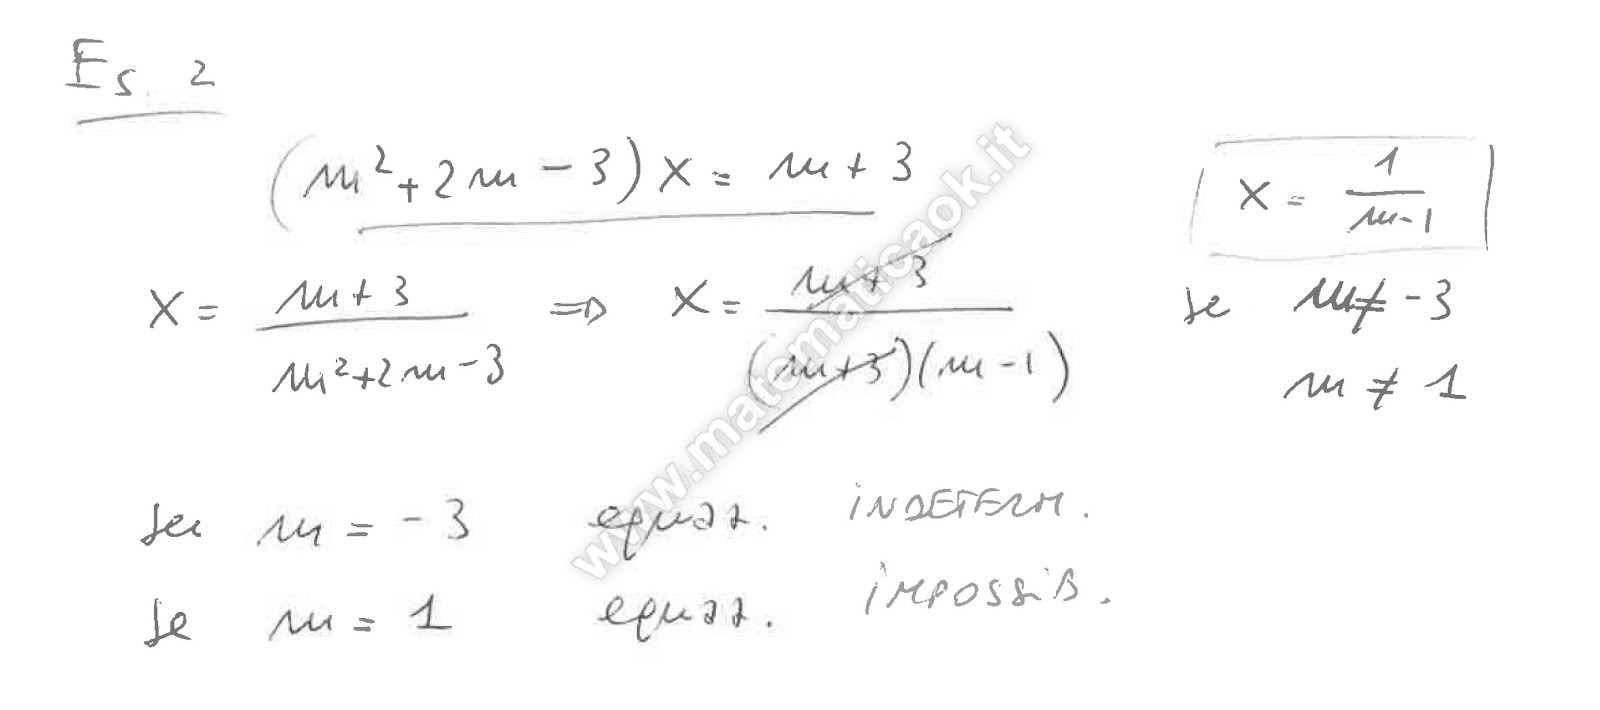 Es. 2
(m²+2m-3)x = m+3
x = m+3 / m²+2m-3 ⇒ x = m+3 / (m+3)(m-1)
x = 1 / m-1
se m ≠ -3
m ≠ 1
se m = -3 equaz. INDETERM.
se m = 1 equaz. IMPOSSIB.
www.matematicaok.it